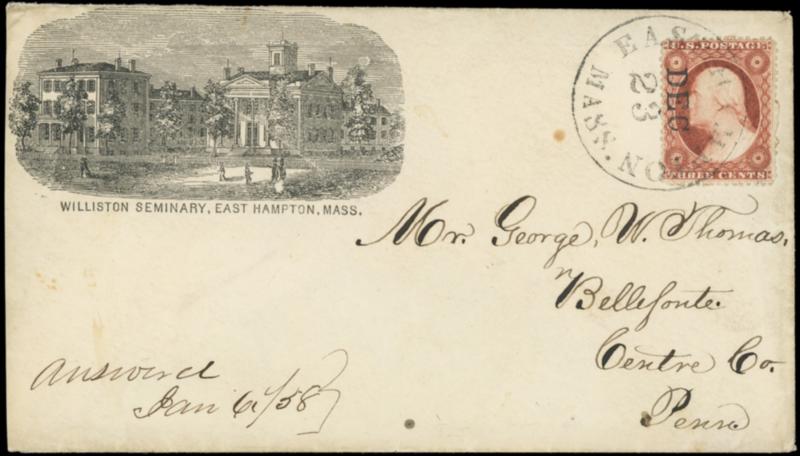 WILLISTON SEMINARY, EAST HAMPTON, MASS.
EAST HAMPTON
MASS.
DEC
23
U.S. POSTAGE
THREE CENTS
Mr. George, W. Thomas,
Bellefonte.
Centre Co.
Penn.
Answered
Jan 6/58